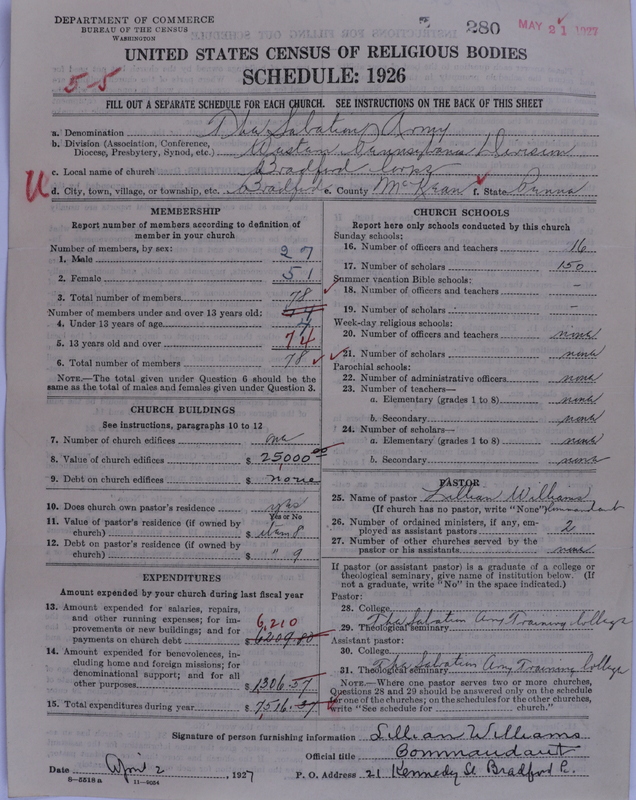 DEPARTMENT OF COMMERCE
BUREAU OF THE CENSUS
WASHINGTON
280
MAY 21 1927
UNITED STATES CENSUS OF RELIGIOUS BODIES
SCHEDULE: 1926
5-5
FILL OUT A SEPARATE SCHEDULE FOR EACH CHURCH. SEE INSTRUCTIONS ON THE BACK OF THIS SHEET
a. Denomination The Salvation Army
b. Division (Association, Conference,
Diocese, Presbytery, Synod, etc.) Western Pennsylvania Division
c. Local name of church Bradford Corps
d. City, town, village, or township, etc. Bradford e. County McKean f. State Penna
MEMBERSHIP
Report number of members according to definition of
member in your church
Number of members, by sex:
1. Male 27
2. Female 51
3. Total number of members 78
Number of members under and over 13 years old:
4. Under 13 years of age 4
5. 13 years old and over 74
6. Total number of members 78
NOTE.—The total given under Question 6 should be
same as the total of males and females given under Question 3.
CHURCH BUILDINGS
See instructions, paragraphs 10 to 12
7. Number of church edifices one
8. Value of church edifices $ 25,000.00
9. Debt on church edifices $ none
10. Does church own pastor's residence yes
Yes or No
11. Value of pastor's residence (if owned by
church) $ item 8
12. Debt on pastor's residence (if owned by
church) $ " 9
EXPENDITURES
Amount expended by your church during last fiscal year
13. Amount expended for salaries, repairs,
and other running expenses; for im-
provements or new buildings; and for
payments on church debt $ 6,210 6209.80
14. Amount expended for benevolences, in-
cluding home and foreign missions; for
denominational support; and for all
other purposes $ 1,306.57
15. Total expenditures during year $ 7,516.37
CHURCH SCHOOLS
Report here only schools conducted by this church
Sunday schools:
16. Number of officers and teachers 16
17. Number of scholars 150
Summer vacation Bible schools:
18. Number of officers and teachers -
19. Number of scholars -
Week-day religious schools:
20. Number of officers and teachers none
21. Number of scholars none
Parochial schools:
22. Number of administrative officers none
23. Number of teachers—
a. Elementary (grades 1 to 8) none
b. Secondary none
24. Number of scholars—
a. Elementary (grades 1 to 8) none
b. Secondary none
PASTOR
25. Name of pastor Lillian Williams
(If church has no pastor, write "None") Commandant
26. Number of ordained ministers, if any, em-
ployed as assistant pastors 2
27. Number of other churches served by the
pastor or his assistants none
If pastor (or assistant pastor) is a graduate of a college or
theological seminary, give name of institution below. (If
not a graduate, write "No" in the space indicated.)
Pastor:
28. College
29. Theological seminary The Salvation Army Training College
Assistant pastor:
30. College
31. Theological seminary The Salvation Army Training College
NOTE.—Where one pastor serves two or more churches,
Questions 28 and 29 should be answered only on the schedule
for one of the churches; on the schedules for the other churches,
write "See schedule for church."
Signature of person furnishing information Lillian Williams
Official title Commandant
Date April 2, 1927 P. O. Address 21 Kennedy St Bradford
8-5518 a 11-9054